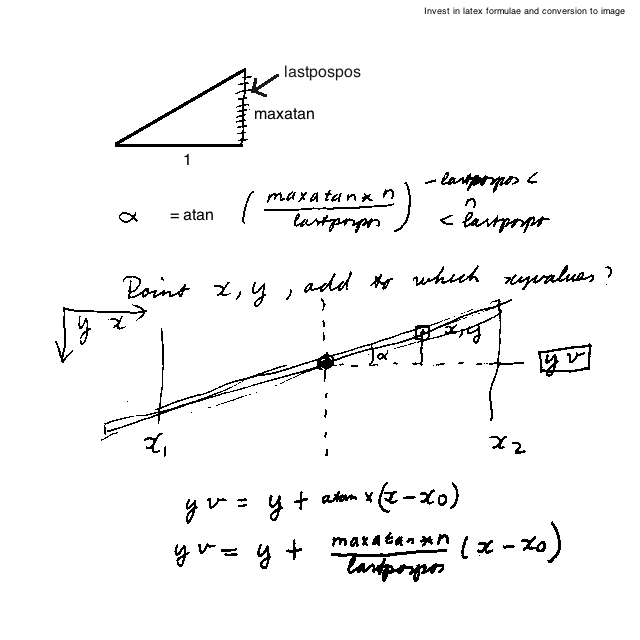 Invest in latex formulae and conversion to image
lastpospos
maxatan
1
α = atan ( maxatan x n / lastpospos ) -lastpospos < n < lastpospo
Point x, y, add to which xyvalues?
y x
x, y
α
yv
x₁
x₂
yv = y + atan x (x - x0)
yv = y + maxatan x n / lastpospos (x - x0)